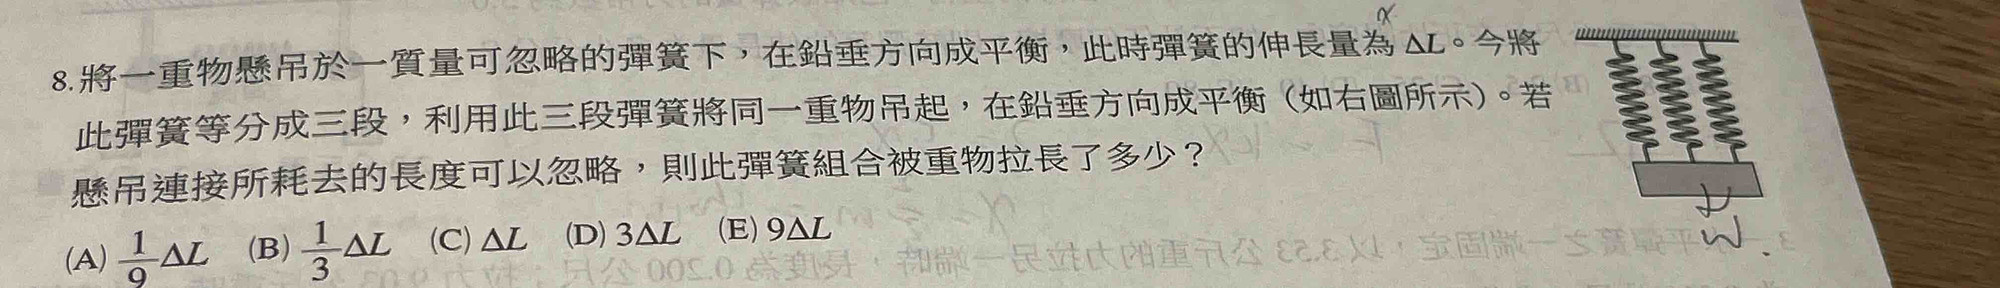 8.將一重物懸吊於一質量可忽略的彈簧下，在鉛垂方向成平衡，此時彈簧的伸長量為 ΔL。今將
此彈簧等分成三段，利用此三段彈簧將同一重物吊起，在鉛垂方向成平衡（如右圖所示）。若
懸吊連接所耗去的長度可以忽略，則此彈簧組合被重物拉長了多少？
(A) 1/9 ΔL (B) 1/3 ΔL (C) ΔL (D) 3ΔL (E) 9ΔL
x
W